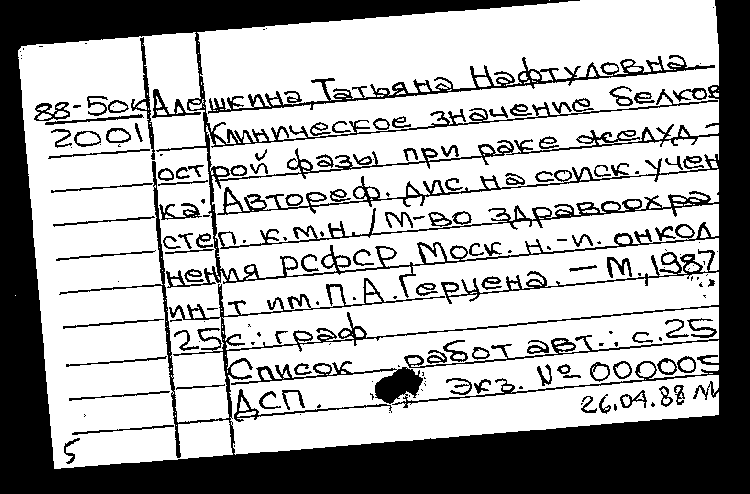 88-50к Алешкина, Татьяна Нафтуловна.
2001 Клиническое значение белков
острой фазы при раке желуд-
ка: Автореф. дис. на соиск. учен
степ. к.м.н. / М-во здравоохра-
нения РСФСР, Моск. н.-и. онкол
ин-т им. П.А. Герцена. — М., 1987
25с.: граф.
Список работ авт.: с. 25
ДСП. Экз. № 000005
26.04.88
5